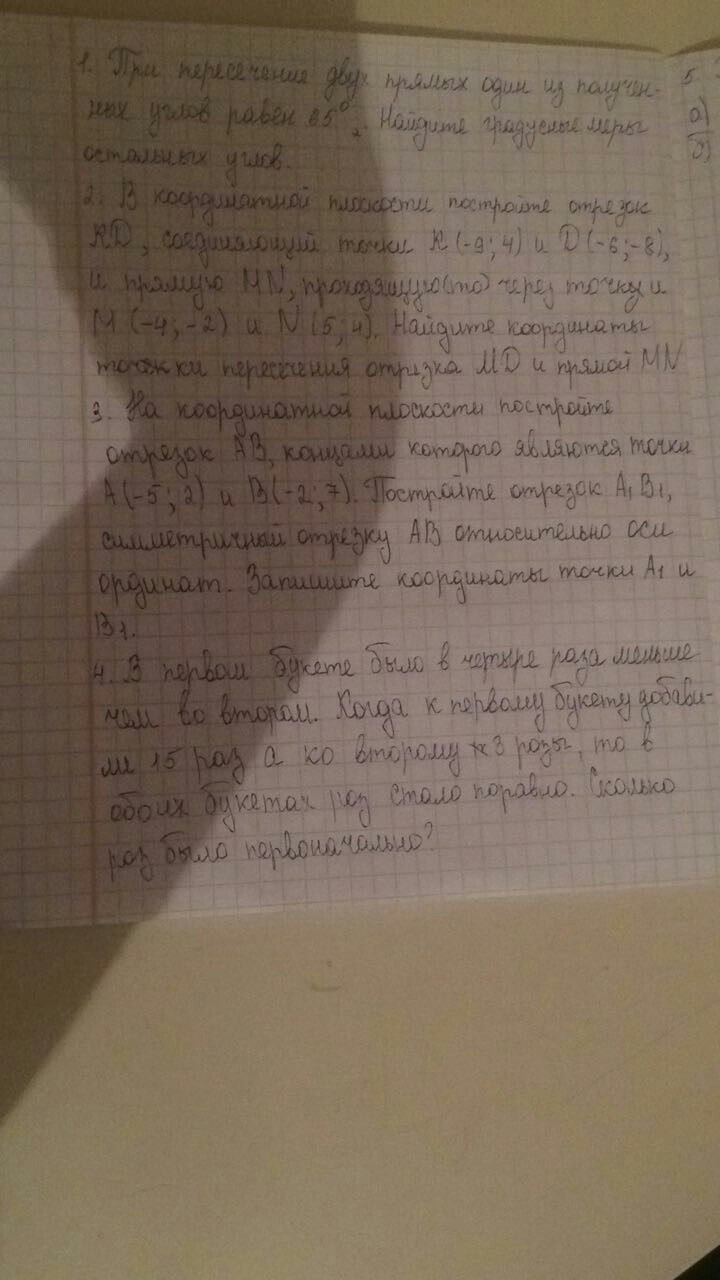 1. При пересечение двух прямых один из получен-
ных углов равен 65°. Найдите градусные меры
остальных углов.
2. В координатной плоскости постройте отрезок
KD, соединяющий точки K (-9; 4) и D (-6; -8),
и прямую MN, проходящую(по) через точку и
M (-4; -2) и N (5; 4). Найдите координаты
точки пересечения отрезка MD и прямой MN
3. На координатной плоскости постройте
отрезок AB, концами которого являются точки
A (-5; 2) и B (-2; 7). Постройте отрезок A1 B1,
симметричный отрезку AB относительно оси
ординат. Запишите координаты точки A1 и
B1.
4. В первом букете было в четыре раза меньше
чем во втором. Когда к первому букету добави-
ли 15 роз а ко второму 3 розы, то в
обоих букетах роз стало поравно. Сколько
роз было первоначально?
5.
а)
б)